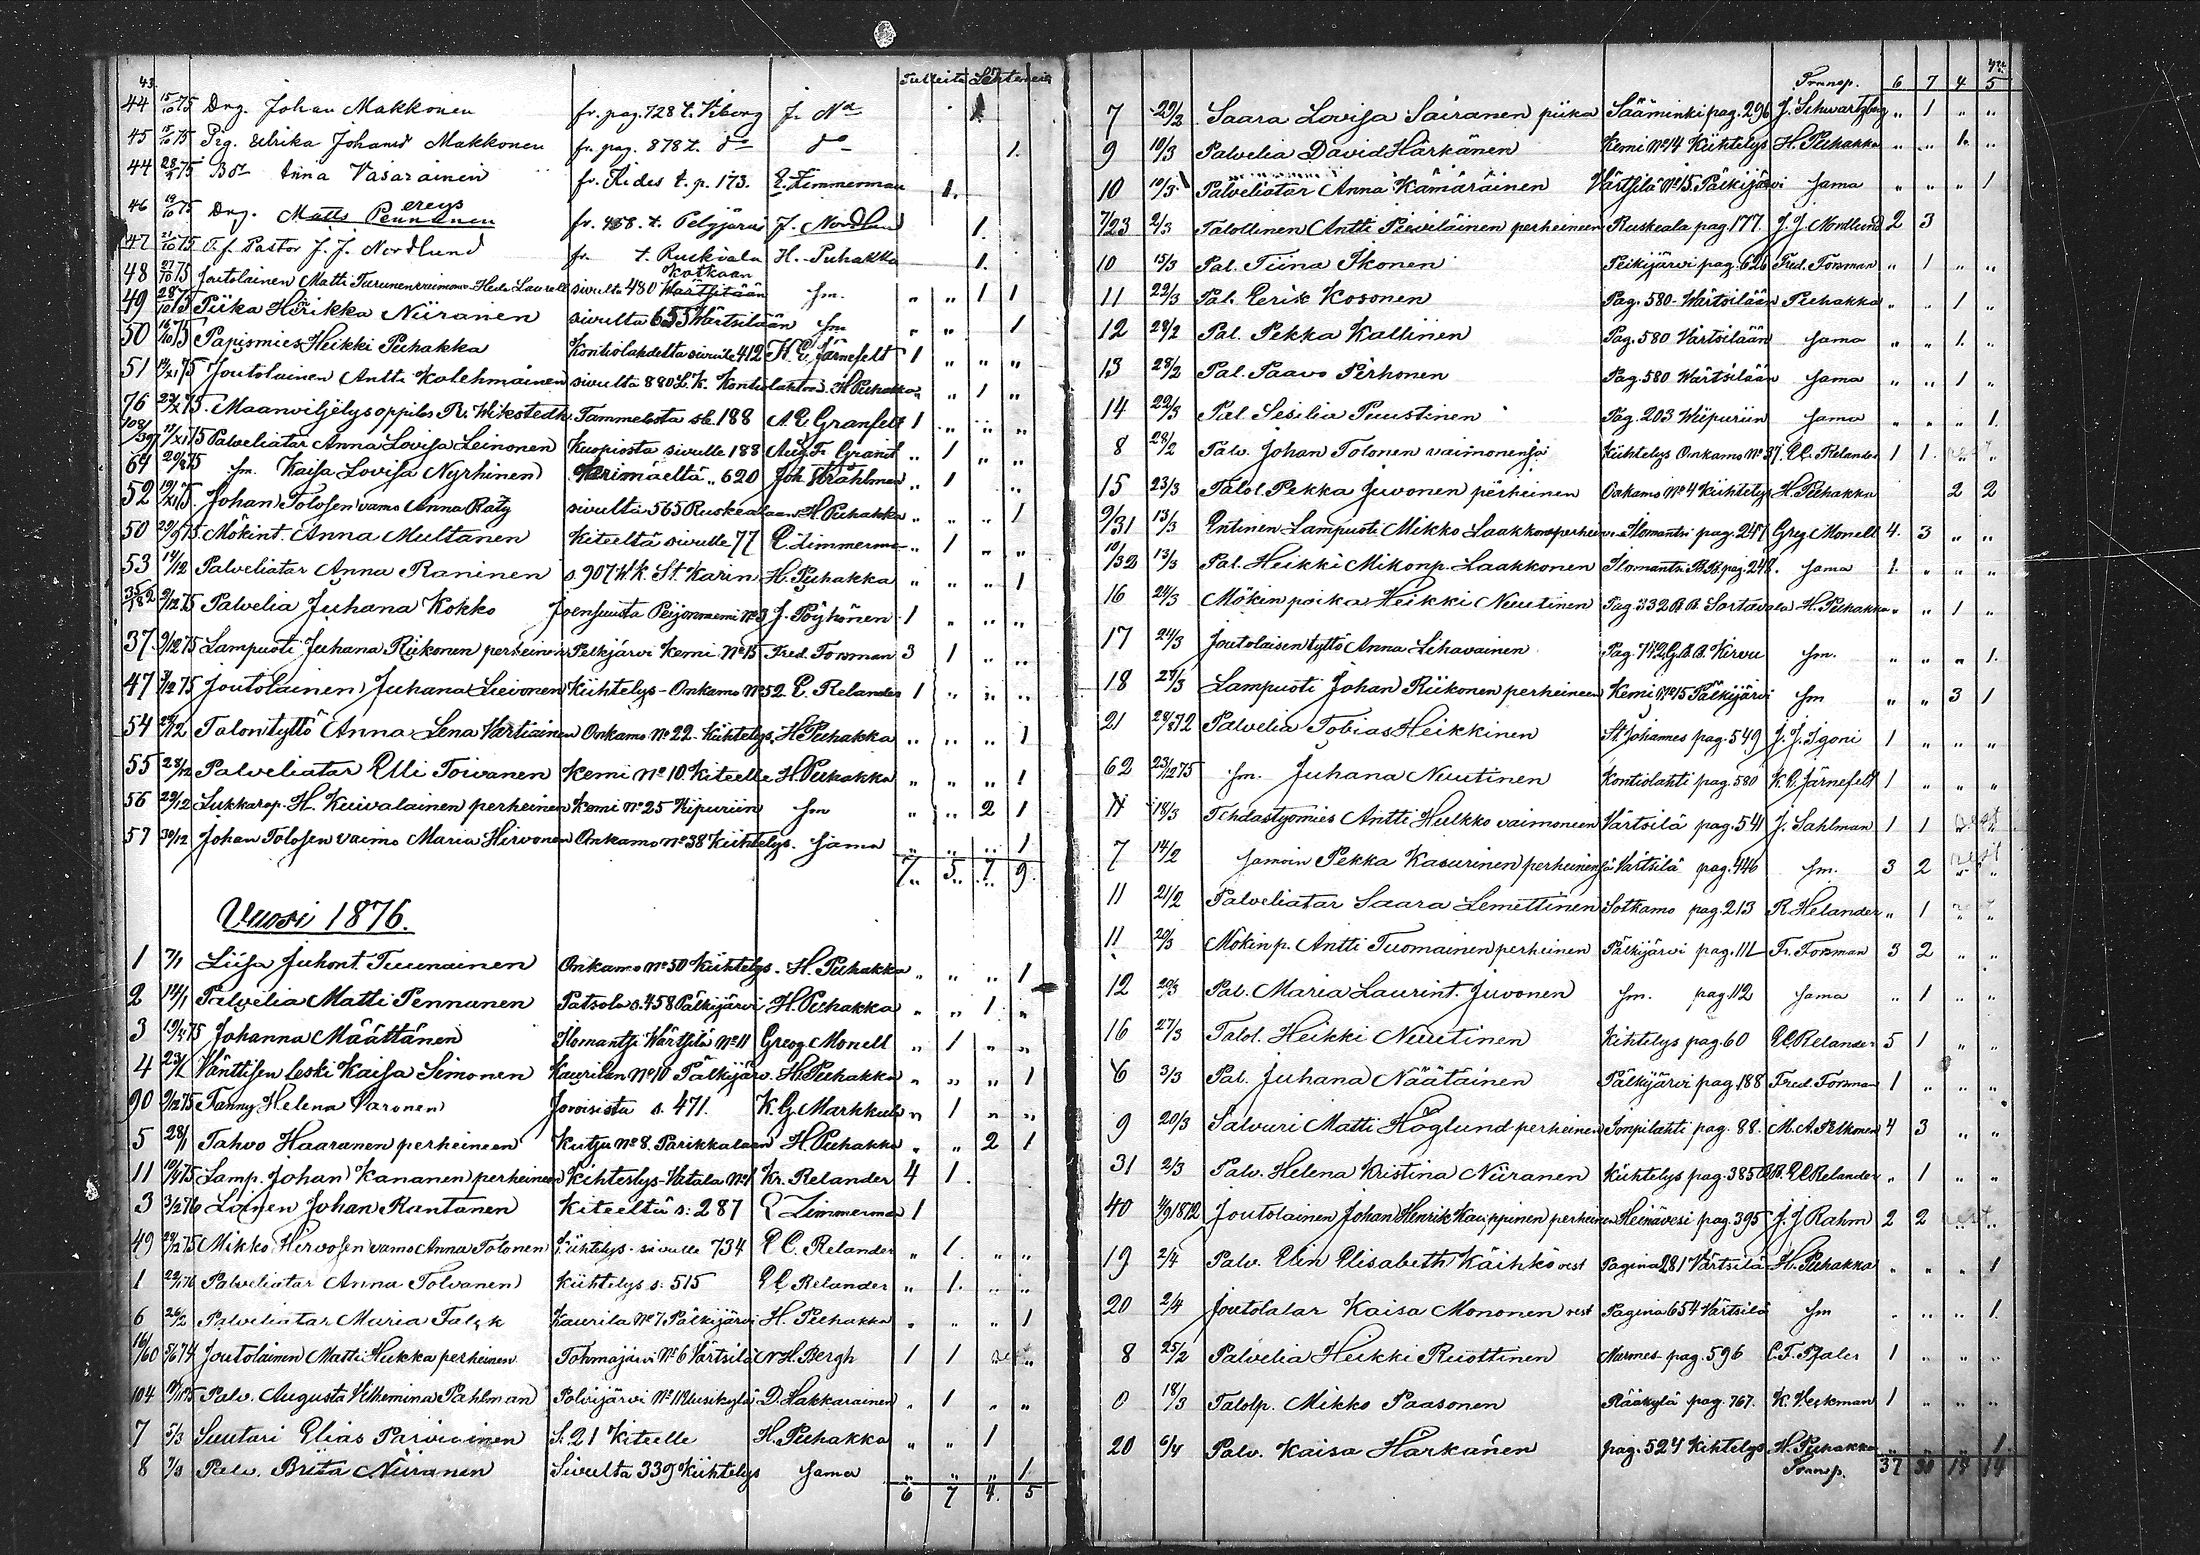 43 Tulleita Lähteneitä
44 15/10 75 Drg. Johan Makkonen fr. pag. 728 t. Viborg J. Nd 1
45 15/10 75 Pig. Ulrika Johansd Makkonen fr. pag. 878 t. do do 1.
44 28/ 75 Anna Vasarainen fr. Kides t. p. 173. E. Zimmerman 1.
46 19/10 75 Drg. Matts Pennanen fr. 458. t. Pelgjärvi J. Nordlund
47 21/10 75 Pastor J. J. Nordlund fr. t. Ruskeala H. Puhakka 1.
48 27/10 75 Joutolainen Matti Turunen sivulta 480 Kotkaan Wärtsilään sm. „ „ 1 1
49 28/10 75 Piika Hörikka Niiranen sivulta 653 Wärtsilään sm „ „ 1
50 16/10 75 Papismies Heikki Puhakka Kontiolahdelta sivulle 412 K. G. Järnefelt 1 „ „ „
51 14/XI 75 Joutolainen Antti Kolehmainen sivulta 880 L.K. Kontiolahteen H. Puhakka „ „ 1 „
76 23/X 75. Maanviljelysoppilas R. Wikstedt Tammelasta siv. 188 A. E. Granfelt 1 „ „ „
108/39 17/XI 75 Palveliatar Anna Lovisa Leinonen Kuopiosta sivulle 188 Aug. F. Granit „ 1 „ „
64 20/8 75 sm. Kaisa Lovisa Nyrhinen Kerimäeltä „ 620 Joh. Stråhlman „ 1 „
52 19/XI 75. Johan Tolosen vamo Anna Räty sivulta 565 Ruskealaan H. Puhakka „ „ „ 1
50 29/9 75 Mökint. Anna Multanen Kiteeltä sivulle 77 E. Zimmerman „ 1 „ „
53 14/12 Palveliatar Anna Raninen s. 907 K.K. St. Karin H. Puhakka „ „ „ 1
9/12 75 Palvelia Juhana Kokko Joensuusta Peijonniemi No 3 J. Pöyhönen 1 „ „ „
37. 9/12 75 Lampuoti Juhana Riikonen perheinen Pelkjärvi Kemi No 15 Fred. Forsman 3 1 „ „
47 3/12 75 Joutolainen Juhana Lievonen Kiihtelys-Onkamo No 52 E. Relander 1 „ „ „
54 24/12 Talontyttö Anna Lena Vartiainen Onkamo No 22. Kiihtelys H. Puhakka „ „ „ 1
55 28/12 Palveliatar Elli Toivanen Kemi No 10. Kiteelle H. Puhakka „ „ „ 1
56 29/12 Lukkarap. H. Kuivalainen perheinen Kemi No 25 Wipuriin sm „ „ 2 1
57 30/12 Johan Tolosen vaimo Maria Hirvonen Onkamo No 38 Kiihtelys. sama „ „ „ 1
7 5 7 9
Vuosi 1876.
1 7/1 Liisa Juhont. Tuunainen Onkamo No 50 Kiihtelys. H. Puhakka „ „ „ 1
2 14/1 Palvelia Matti Pennanen Patsola s. 458 Pälkijärvi H. Puhakka „ „ 1 „
3 19/ 75 Johanna Määttänen Ilomantsi Wärtsilä No 11 Greog Monell „ 1 „ „
4 23/1 Vänttisen leski Kaisa Simonen Kaurilan No 10 Pälkijärv. H. Puhakka „ „ „ 1
90 9/12 75 Fanny Helena Varonen Joroisista s. 471. K. G. „ 1 „ „
5 28/1 Tahvo Haaranen perheineen Kutju No 8. Parikkalaan H. Puhakka „ „ 2 1
11 19/ 75 Lamp. Johan Kananen perheineen Kihtelys-Hatala No 1 Kr. Relander 4 1
3 3/2 76 Loinen Johan Rantanen Kiteeltä s: 287 E Zimmerman 1
49 29/12 75 Mikko Hirvosen vamo Anna Tolonen Kiihtelys- sivulle 734 E C. Relander „ 1. „ „
1 22/1 76 Palveliatar Anna Tolvanen Kiihtelys s: 515 E C Relander „ 1. „ „
6 26/2 Palveliatar Maria Falck Kaurila No 7 Pälkijärvi H. Puhakka „ „ „ 1
16/60 5/6 74 Joutolainen Matti Hukka perheinen Tohmajärvi No 6 Värtsilä N. H. Bergh 1 1 „
104 75 Palv. Augusta Vilhemina Pahlman Polvijärvi D. Hakkarainen „ 1 „ „
7 5/3 Suutari Elias Parviainen S. 21 Kiteelle H. Puhakka „ „ 1
8 7/3 Palv. Brita Niiranen Sivulta 339 Kiihtelys sama „ „ „ 1
6 7 4. 5
Transp. 6 7 4 5
7 29/2 Saara Lovisa Sairanen piika Sääminki pag. 296 J. Schwartzberg „ 1 „ „
9 10/3 Palvelia David Härkänen Kemi No 14 Kiihtelys H. Puhakka „ „ 1. „
10 10/3 Palveliatar Anna Kämäräinen Värtsilä No 15 Pälkijärvi sama „ „ „ 1
7/23 2/3 Talollinen Antti perheineen Ruskeala pag. 177. J. J. Nordlund 2 3
10 15/3 Pal. Tiina Ikonen Pelkijärvi pag. 626 Fred. Forsman „ 1 „ „
11 22/3 Pal. Eerik Kosonen Pag. 580- Wärtsilään Puhakka „ „ 1 „
12 28/2 Pal. Pekka Kallinen Pag. 580 Värtsilään sama „ „ 1. „
13 28/2 Pal. Paavo Pirhonen Pag. 580 Wärtsilään sama „ „ 1 „
14 22/3 Pal. Sesilia Puustinen Pag. 203 Wiipuriin sama „ „ „ 1.
8 28/2 Palv. Johan Tolonen vaimonensa Kiihtelys Onkamo No 37. E C. Relander 1 1 „ „
15 23/3 Talol. Pekka Juvonen perheinen Onkamo No 4 Kiihtelys H. Puhakka 2 2
9/31 13/3 Entinen Lampuoti Mikko Laakkonen perheineen Ilomantsi pag. 247 Greg Monell 4. 3 „ „
10/32 13/3 Pal. Heikki Mikonp. Laakkonen Ilomantsi B.B. pag. 248. sama 1. „ „ „
16 24/3 Mökin poika Heikki Nuutinen Pag. 332 B.B. Sortavala H. Puhakka „ „ 1 „
17 24/3 Joutolaisen tyttö Anna Lihavainen Pag. 742 G.B.B. Kirvu sm. „ „ „ 1.
18 27/3 Lampuoti Johan Riikonen perheineen Kemi No 15 Pälkijärvi sm „ „ 3 1
21 28/8 72 Palvelia Tobias Heikkinen St. Johannes pag. 549 J. J. Igoni 1 „ „ „
62 23/12 75 sm. Juhana Nuutinen Kontiolahti pag. 580 K. G. Järnefelt 1 „ „ „
11 18/3 Tehdastyömies Antti Hulkko vaimoneen Värtsilä pag. 541 J. Sahlman 1 1 „
7 14/2 samoin Pekka Kasurinen perheinensä Värtsilä pag. 446 sm. 3 2 „
11 21/2 Palveliatar Saara Lemettinen Sotkamo pag. 213 R. Helander „ 1 „
11 20/3 Mökin p. Antti Tuomainen perheinen Pälkijärvi pag. 111 Fr. Forsman 3 2 „ „
12 20/3 Pal. Maria Laurint. Juvonen sm. pag. 112 sama „ 1 „ „
16 27/3 Talol. Heikki Nuutinen Kihtelys pag. 60 E C Relander 5 1 „ „
6 3/3 Pal. Juhana Näätäinen Pälkijärvi pag. 188 Fred. Forsman 1 „ „ „
9 20/3 Salvuri Matti Höglund perheinen Impilahti pag. 88. M. A. Pelkonen 4 3 „ „
31 2/3 Palv. Helena Kristina Niiranen Kiihtelys pag. 385 B.B. E C Relander „ 1 „ „
40 4/9 1872 Joutolainen Johan Henrik Kauppinen perheinen Heinävesi pag. 395 J. J Rahm 2 2 „
19 2/4 Palv. Elin Elisabeth Käihkö rest Pagina 281 Värtsilä H. Puhakka „ „ „ 1
20 2/4 Joutolatar Kaisa Mononen rest Pagina 654 Värtsilä sm „ „ „ 1.
8 25/2 Palvelia Heikki Ruottinen Nurmes pag. 596 C. F. Pfaler 1 „ „ „
0 18/3 Talolp. Mikko Paasonen Rääkylä pag. 767. K. Heckman 1 „ „ „
20 6/4 Palv. Kaisa Härkänen pag. 524 Kihtelys H. Puhakka 1
Transp. 37 30 13 14